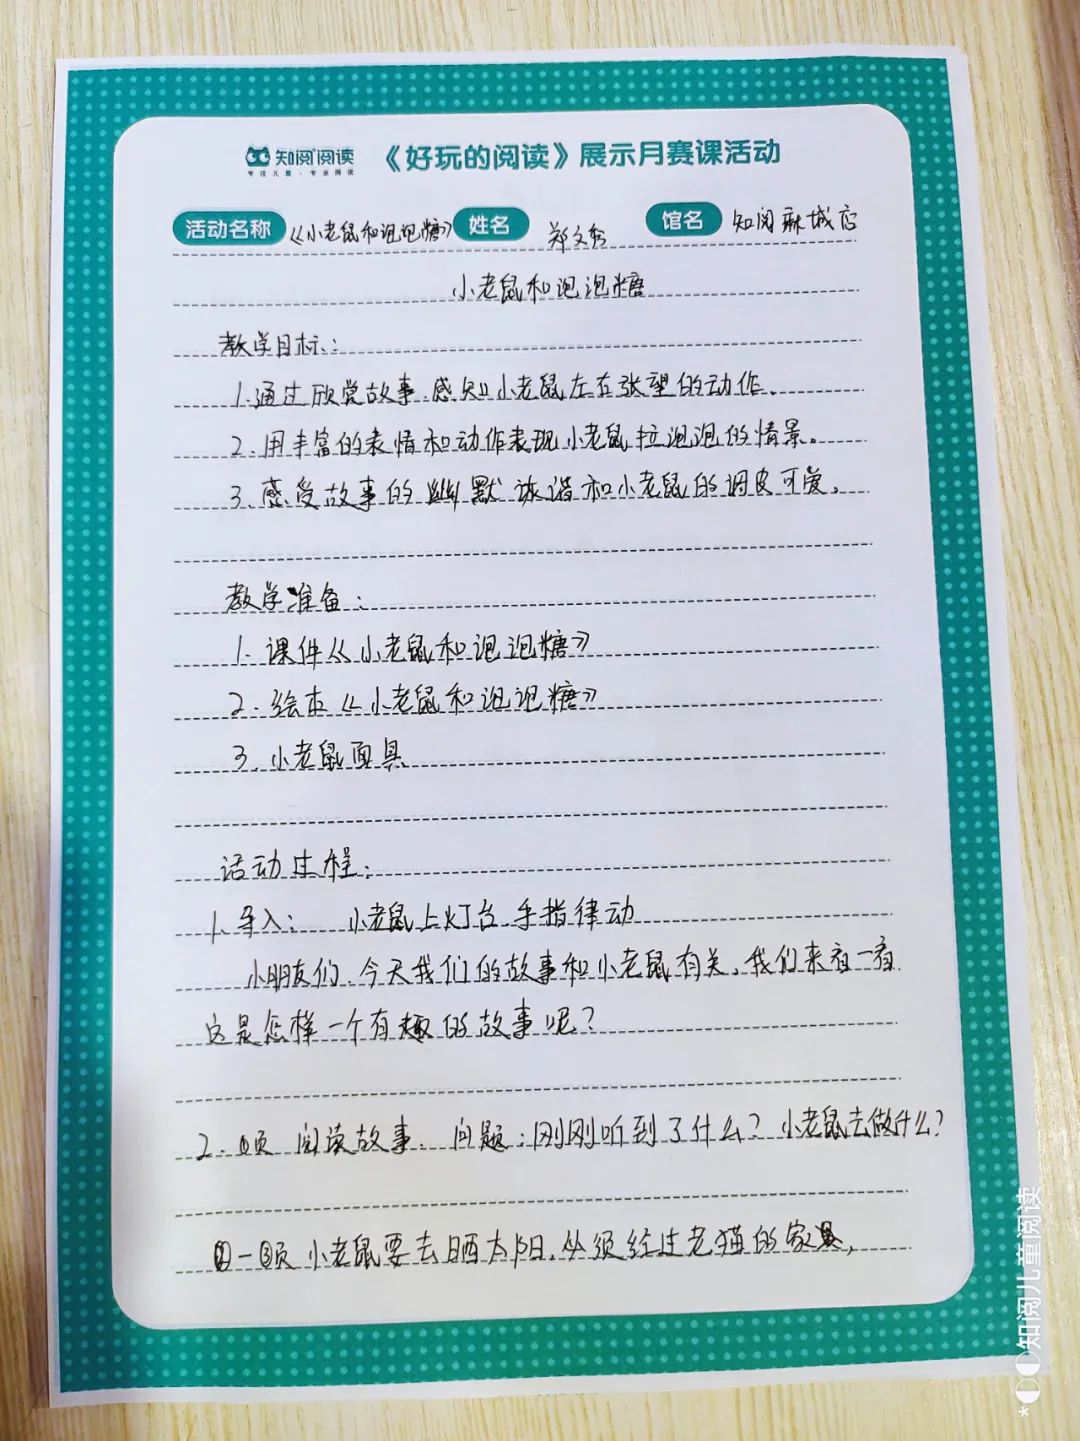 知阅阅读 《好玩的阅读》展示月赛课活动
专注儿童·专业阅读
活动名称 《小老鼠和泡泡糖》 姓名 郑文秀 馆名 知阅麻城店
小老鼠和泡泡糖
教学目标：
1.通过欣赏故事.感知小老鼠左右张望的动作.
2.用丰富的表情和动作表现小老鼠拉泡泡的情景。
3.感受故事的幽默诙谐和小老鼠的调皮可爱。
教学准备：
1.课件《小老鼠和泡泡糖》
2.绘本《小老鼠和泡泡糖》
3.小老鼠面具
活动过程：
1.导入： 小老鼠上灯台手指律动
小朋友们.今天我们的故事和小老鼠有关,我们来看一看
这是怎样一个有趣的故事呢？
2.①页 阅读故事. 问题：刚刚听到了什么？小老鼠去做什么？
②—③页 小老鼠要去晒太阳.必须经过老猫的家,
知阅儿童阅读